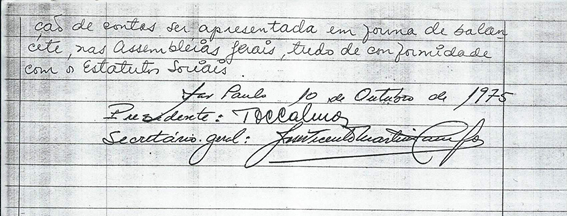 ção de contas ser apresentada em forma de balan
cête, nas Assembleias gerais, tudo de conformidade
com o Estatutos Sociais.
São Paulo 10 de Outubro de 1975
Presidente:
Secretário-geral: José Vicente